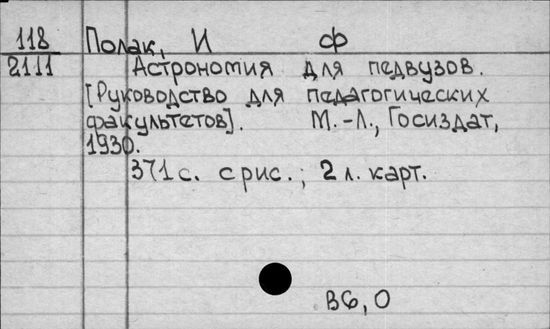 118 Полак, И Ф
2111 Астрономия для педвузов.
[Руководство для педагогических
факультетов]. М.-Л., Госиздат,
1930.
371 с. с рис.; 2 л. карт.
В6,0